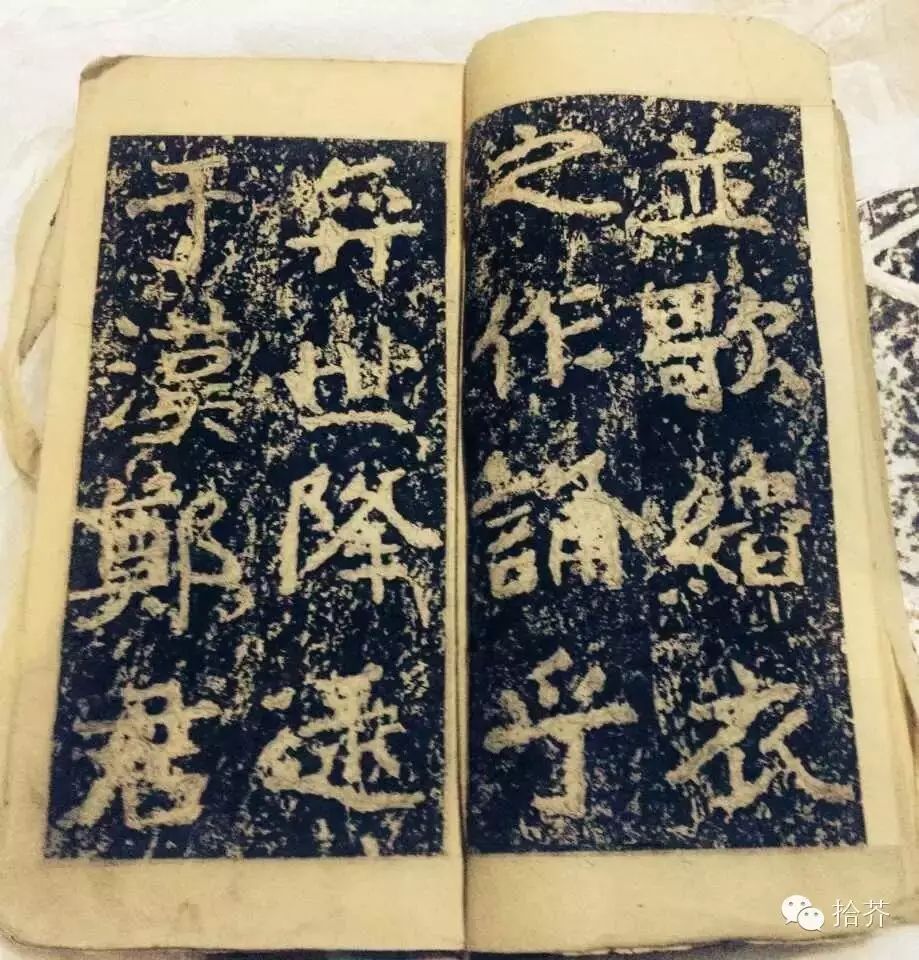 並歌緇衣
之作誦乎
弈世降逮
于漢鄭君
拾芥